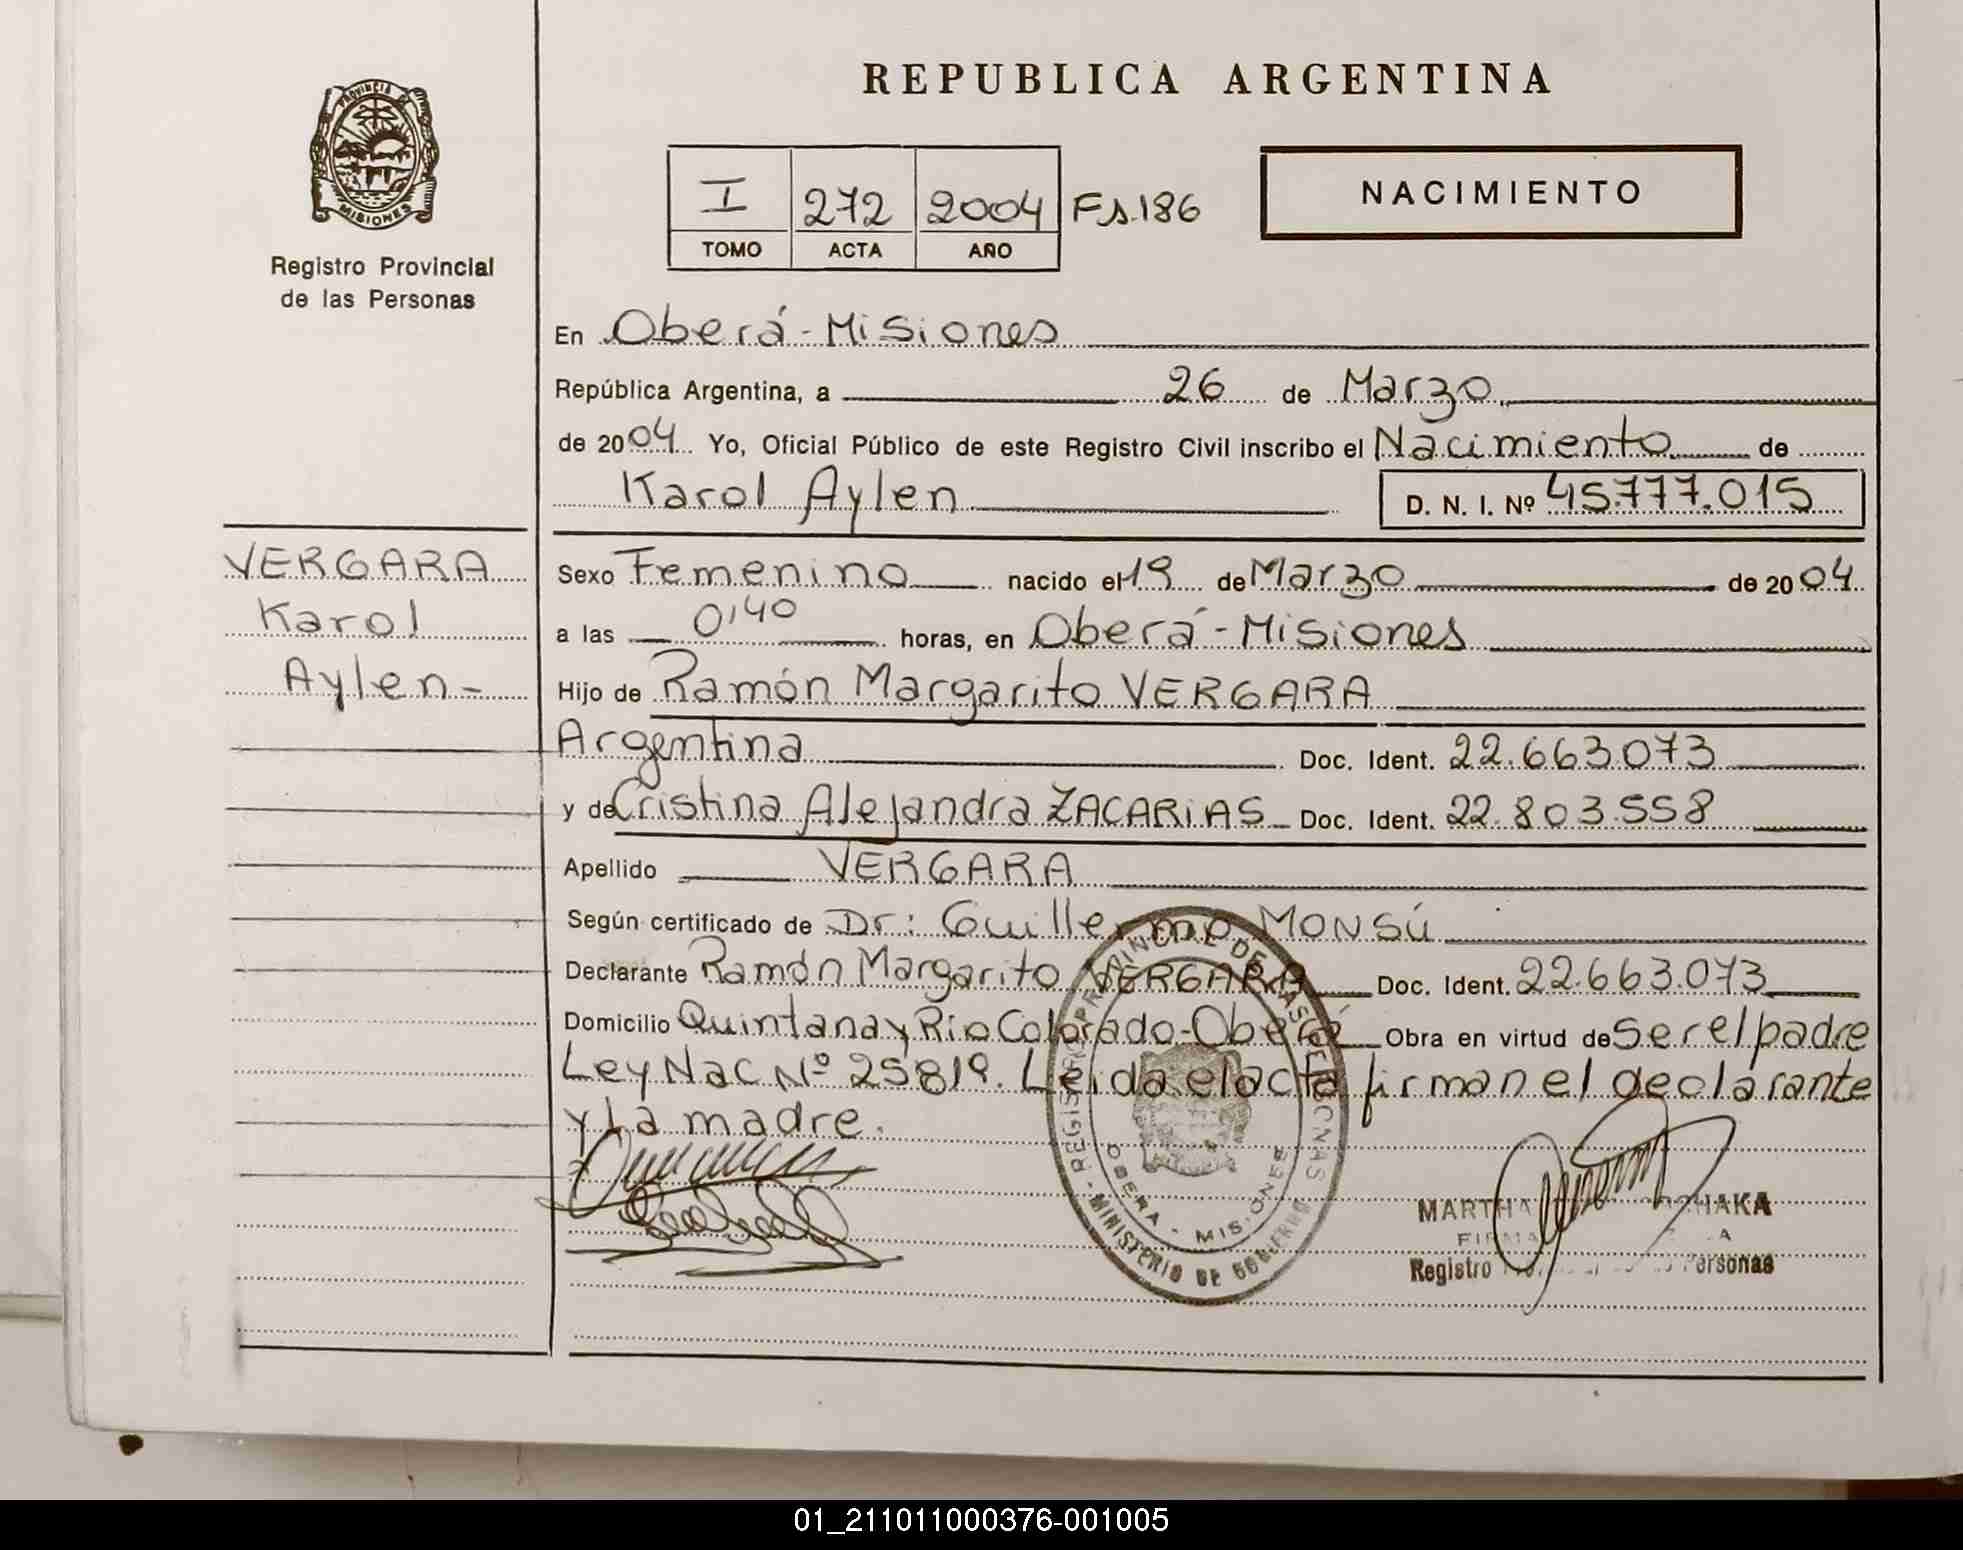 PROVINCIA DE
MISIONES
Registro Provincial
de las Personas
REPUBLICA ARGENTINA
I 272 2004 Fs.186
TOMO ACTA AÑO
NACIMIENTO
En Oberá-Misiones
República Argentina, a 26 de Marzo
de 2004 Yo, Oficial Público de este Registro Civil inscribo el Nacimiento de
Karol Aylen D. N. I. Nº 45.777.015
VERGARA
Karol
Aylen-
Sexo Femenino nacido el 19 de Marzo de 2004
a las 0,40 horas, en Oberá-Misiones
Hijo de Ramón Margarito VERGARA
Argentina Doc. Ident. 22.663.073
y de Cristina Alejandra ZACARIAS Doc. Ident. 22.803.558
Apellido VERGARA
Según certificado de Dr: Guillermo MONSÚ
Declarante Ramón Margarito VERGARA Doc. Ident. 22.663.073
Domicilio Quintana y Río Colorado-Oberá Obra en virtud de Ser el padre
Ley Nac Nº 25819. Leida el acta firman el declarante
y La madre.
OBERA - MISIONES
MINISTERIO DE GOBIERNO
MARTHA
Registro Personas
01_211011000376-001005